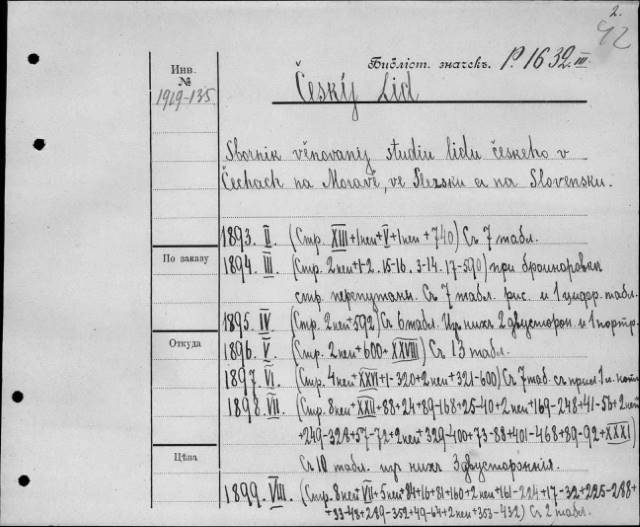 2.
42
Библіот. значекъ. P. 1632. III
Инв.
№
1919-135
Českÿ Lid
Sbornik věnovanÿ studiu lidu českeho v
Čechach na Moravě, ve Slezsku a na Slovensku.
1893. II. (Стр. XIII+1нен+V+1нен+740) Съ 7 табл.
По заказу
1894. III. (Стр. 2нен+1-2. 15-16. 3-14. 17-590) при брошюровкѣ
стр. перепутаны. Съ 7 табл. рис. и 1 цифр. табл.
1895. IV (Стр. 2нен+592) Съ 6 табл. Изъ нихъ 2 двусторон. и 1 портр.
Откуда
1896. V. (Стр. 2нен+600+XXVIII) Съ 13 табл.
1897. VI. (Стр. 4нен+XXVI+1-320+2нен+321-600) Съ 7 таб. съ прил. 1 л. нотъ
1898. VII. (Стр. 8нен+XXII+88+24+89-168+25-40+2нен+169-248+41-56+2нен
+249-328+57-72+2нен+329-400+73-88+401-468+89-92+XXXI)
Цѣна
Съ 10 табл. изъ нихъ 3 двустороннія.
1899. VIII. (Стр. 8нен+VII+5нен+84+16+81+160+2нен+161-224+17-32+225-288+
+33-48+289-352+49-64+2нен+353-432) Съ 2 табл.